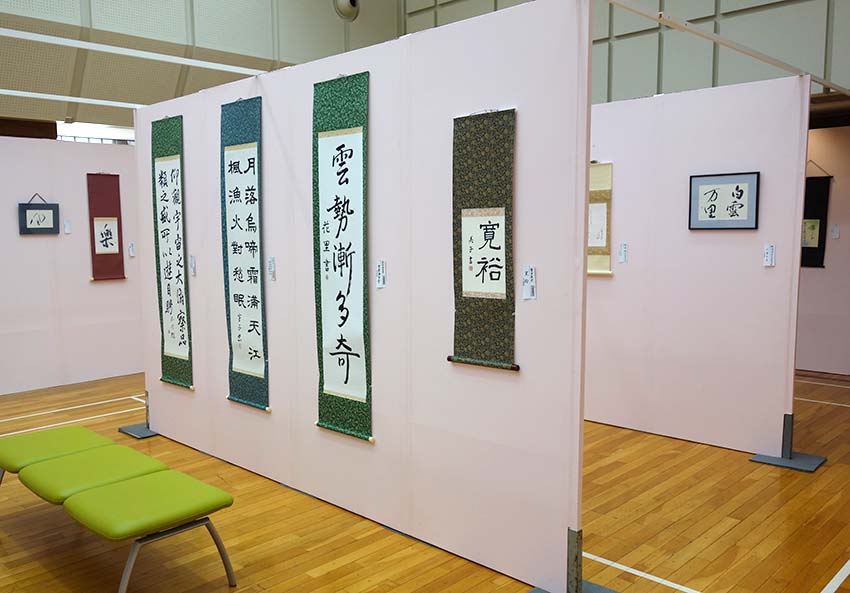 樂
仰觀宇宙之大俯察品
類之盛所以遊目騁
月落烏啼霜滿天江
楓漁火對愁眠
雲勢漸多奇
花里書
寛裕
白雲
万里